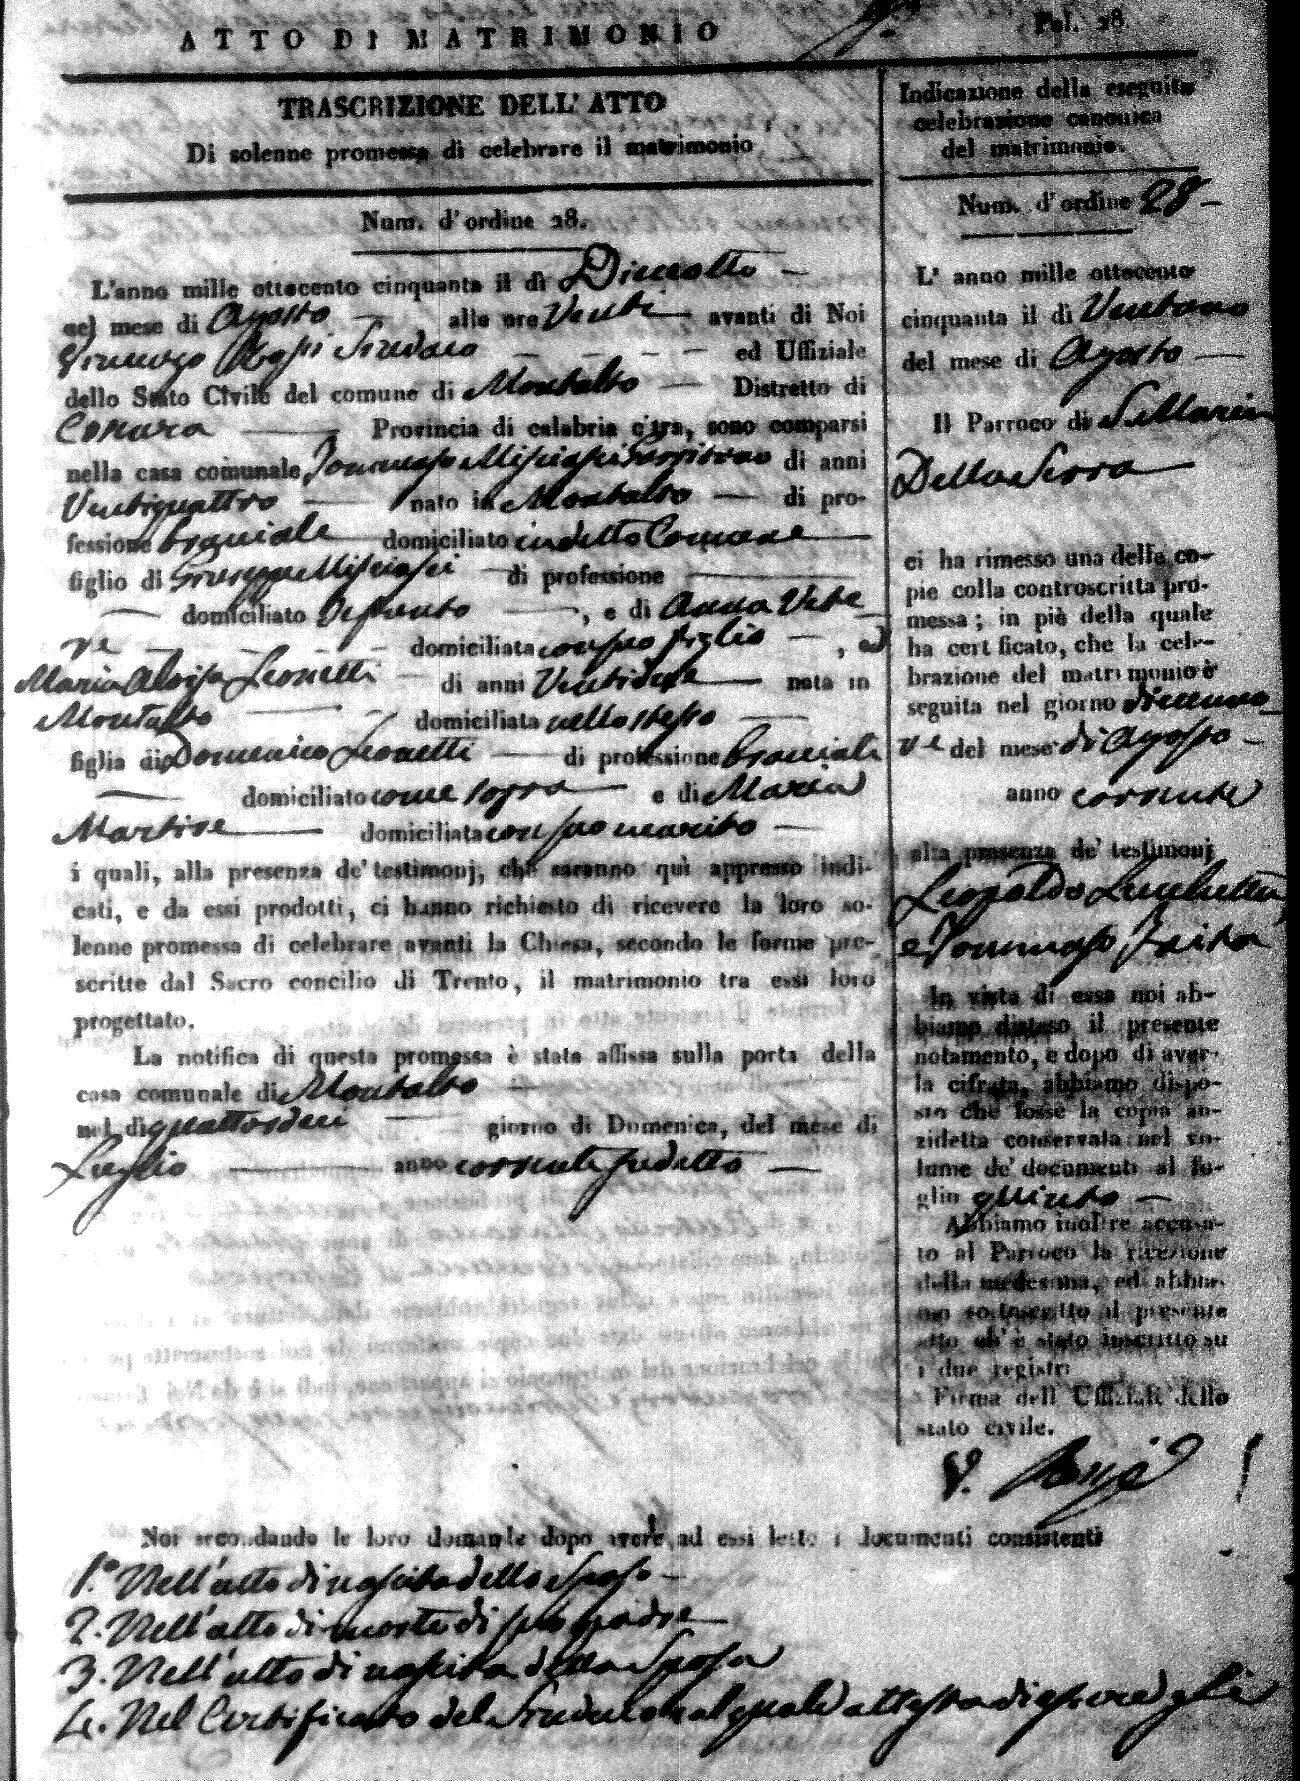 ATTO DI MATRIMONIO
Fol. 28
TRASCRIZIONE DELL' ATTO
Di solenne promessa di celebrare il matrimonio
Num. d'ordine 28.
L'anno mille ottocento cinquanta il dì Dieciotto
nel mese di Agosto alle ore Venti avanti di Noi
Vincenzo Rossi Sindaco ed Uffiziale
dello Stato Civile del comune di Montalto Distretto di
Cosenza Provincia di calabria citra, sono comparsi
nella casa comunale, Tommaso Misciasci di anni
Ventiquattro nato in Montalto di pro-
fessione bracciale domiciliato in detto Comune
figlio di Giuseppe Misciasci di professione
domiciliato Defunto , e di Anna Vete
re domiciliata con suo figlio , ed
Maria Aloisa Leonetti di anni nata in
Montalto domiciliata nello stesso
figlia di Domenico Leonetti di professione bracciale
domiciliato come sopra e di Maria
Martire domiciliata con suo marito
i quali, alla presenza de' testimonj, che saranno quì appresso indi-
cati, e da essi prodotti, ci hanno richiesto di ricevere la loro so-
lenne promessa di celebrare avanti la Chiesa, secondo le forme pre-
scritte dal Sacro concilio di Trento, il matrimonio tra essi loro
progettato.
La notifica di questa promessa è stata affissa sulla porta della
casa comunale di Montalto
nel dì quattordici giorno di Domenica, del mese di
Luglio anno corrente sudetto
Indicazione della eseguita
celebrazione canonica
del matrimonio.
Num. d'ordine 28
L' anno mille ottocento
cinquanta il di Ventuno
del mese di Agosto
Il Parroco di S. Maria
Della Serra
ci ha rimesso una delle co-
pie colla controscritta pro-
messa; in piè della quale
ha cert ficato, che la cele-
brazione del matrimonio è
seguita nel giorno diecinno
ve del mese di Agosto
anno corrente
alla presenza de' testimonj
Leopoldo Luchetta
e Tommaso Zaita
In vista di essa noi ab-
biamo disteso il presente
notamento, e dopo di aver-
la cifrata, abbiamo dispo-
sto che fosse la copia an-
zidetta conservata nel vo-
lume de' documenti al fo-
glio quinto
Abbiamo inoltre accusa-
to al Parroco la ricezione
della medesima, ed abbia-
mo sottoscritto il presente
atto ch' è stato inscritto su
i due registri
Firma dell' Uffiziale dello
stato civile.
V. Rossi
Noi secondando le loro domande dopo avere ad essi letto i documenti consistenti
1.° Nell'atto di nascita dello Sposo
2. Nell'atto di morte di suo padre
3. Nell'atto di nascita della Sposa
4. Nel Certificato del Sindaco nel quale attesta di essere gli